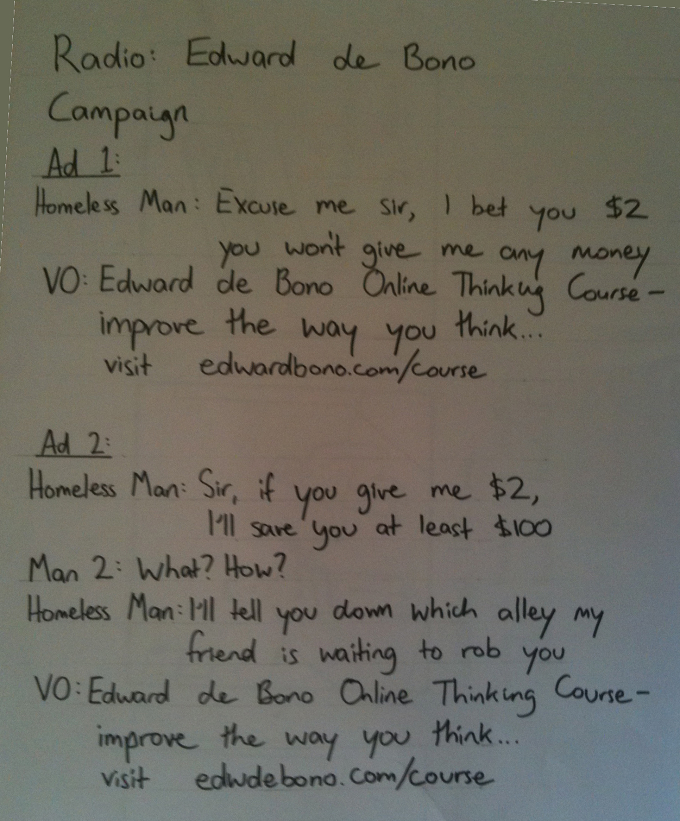 Radio: Edward de Bono
Campaign
Ad 1:
Homeless Man: Excuse me sir, I bet you $2
you won't give me any money
VO: Edward de Bono Online Thinking Course-
improve the way you think...
visit edwardbono.com/course
Ad 2:
Homeless Man: Sir, if you give me $2,
I'll save you at least $100
Man 2: What? How?
Homeless Man: I'll tell you down which alley my
friend is waiting to rob you
VO: Edward de Bono Online Thinking Course-
improve the way you think...
visit edwdebono.com/course